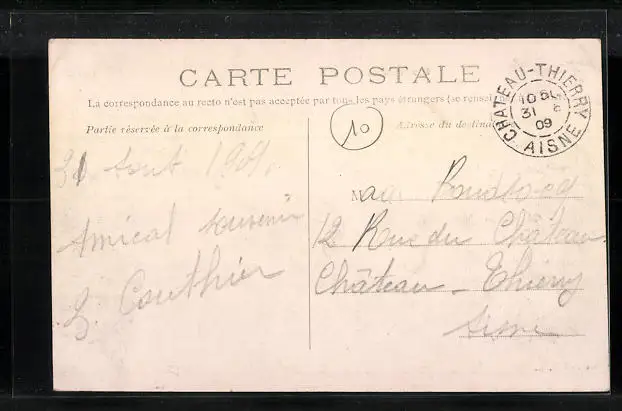 CARTE POSTALE
La correspondance au recto n'est pas acceptée par tous les pays étrangers (se rensei
Partie réservée à la correspondance
Adresse du destina
10
CHATEAU-THIERRY
10
31 8
09
AISNE
31 Aout 1909.
Amical souvenir
Gouthier
M
12 Rue du Château
Château-Thierry
Aisne